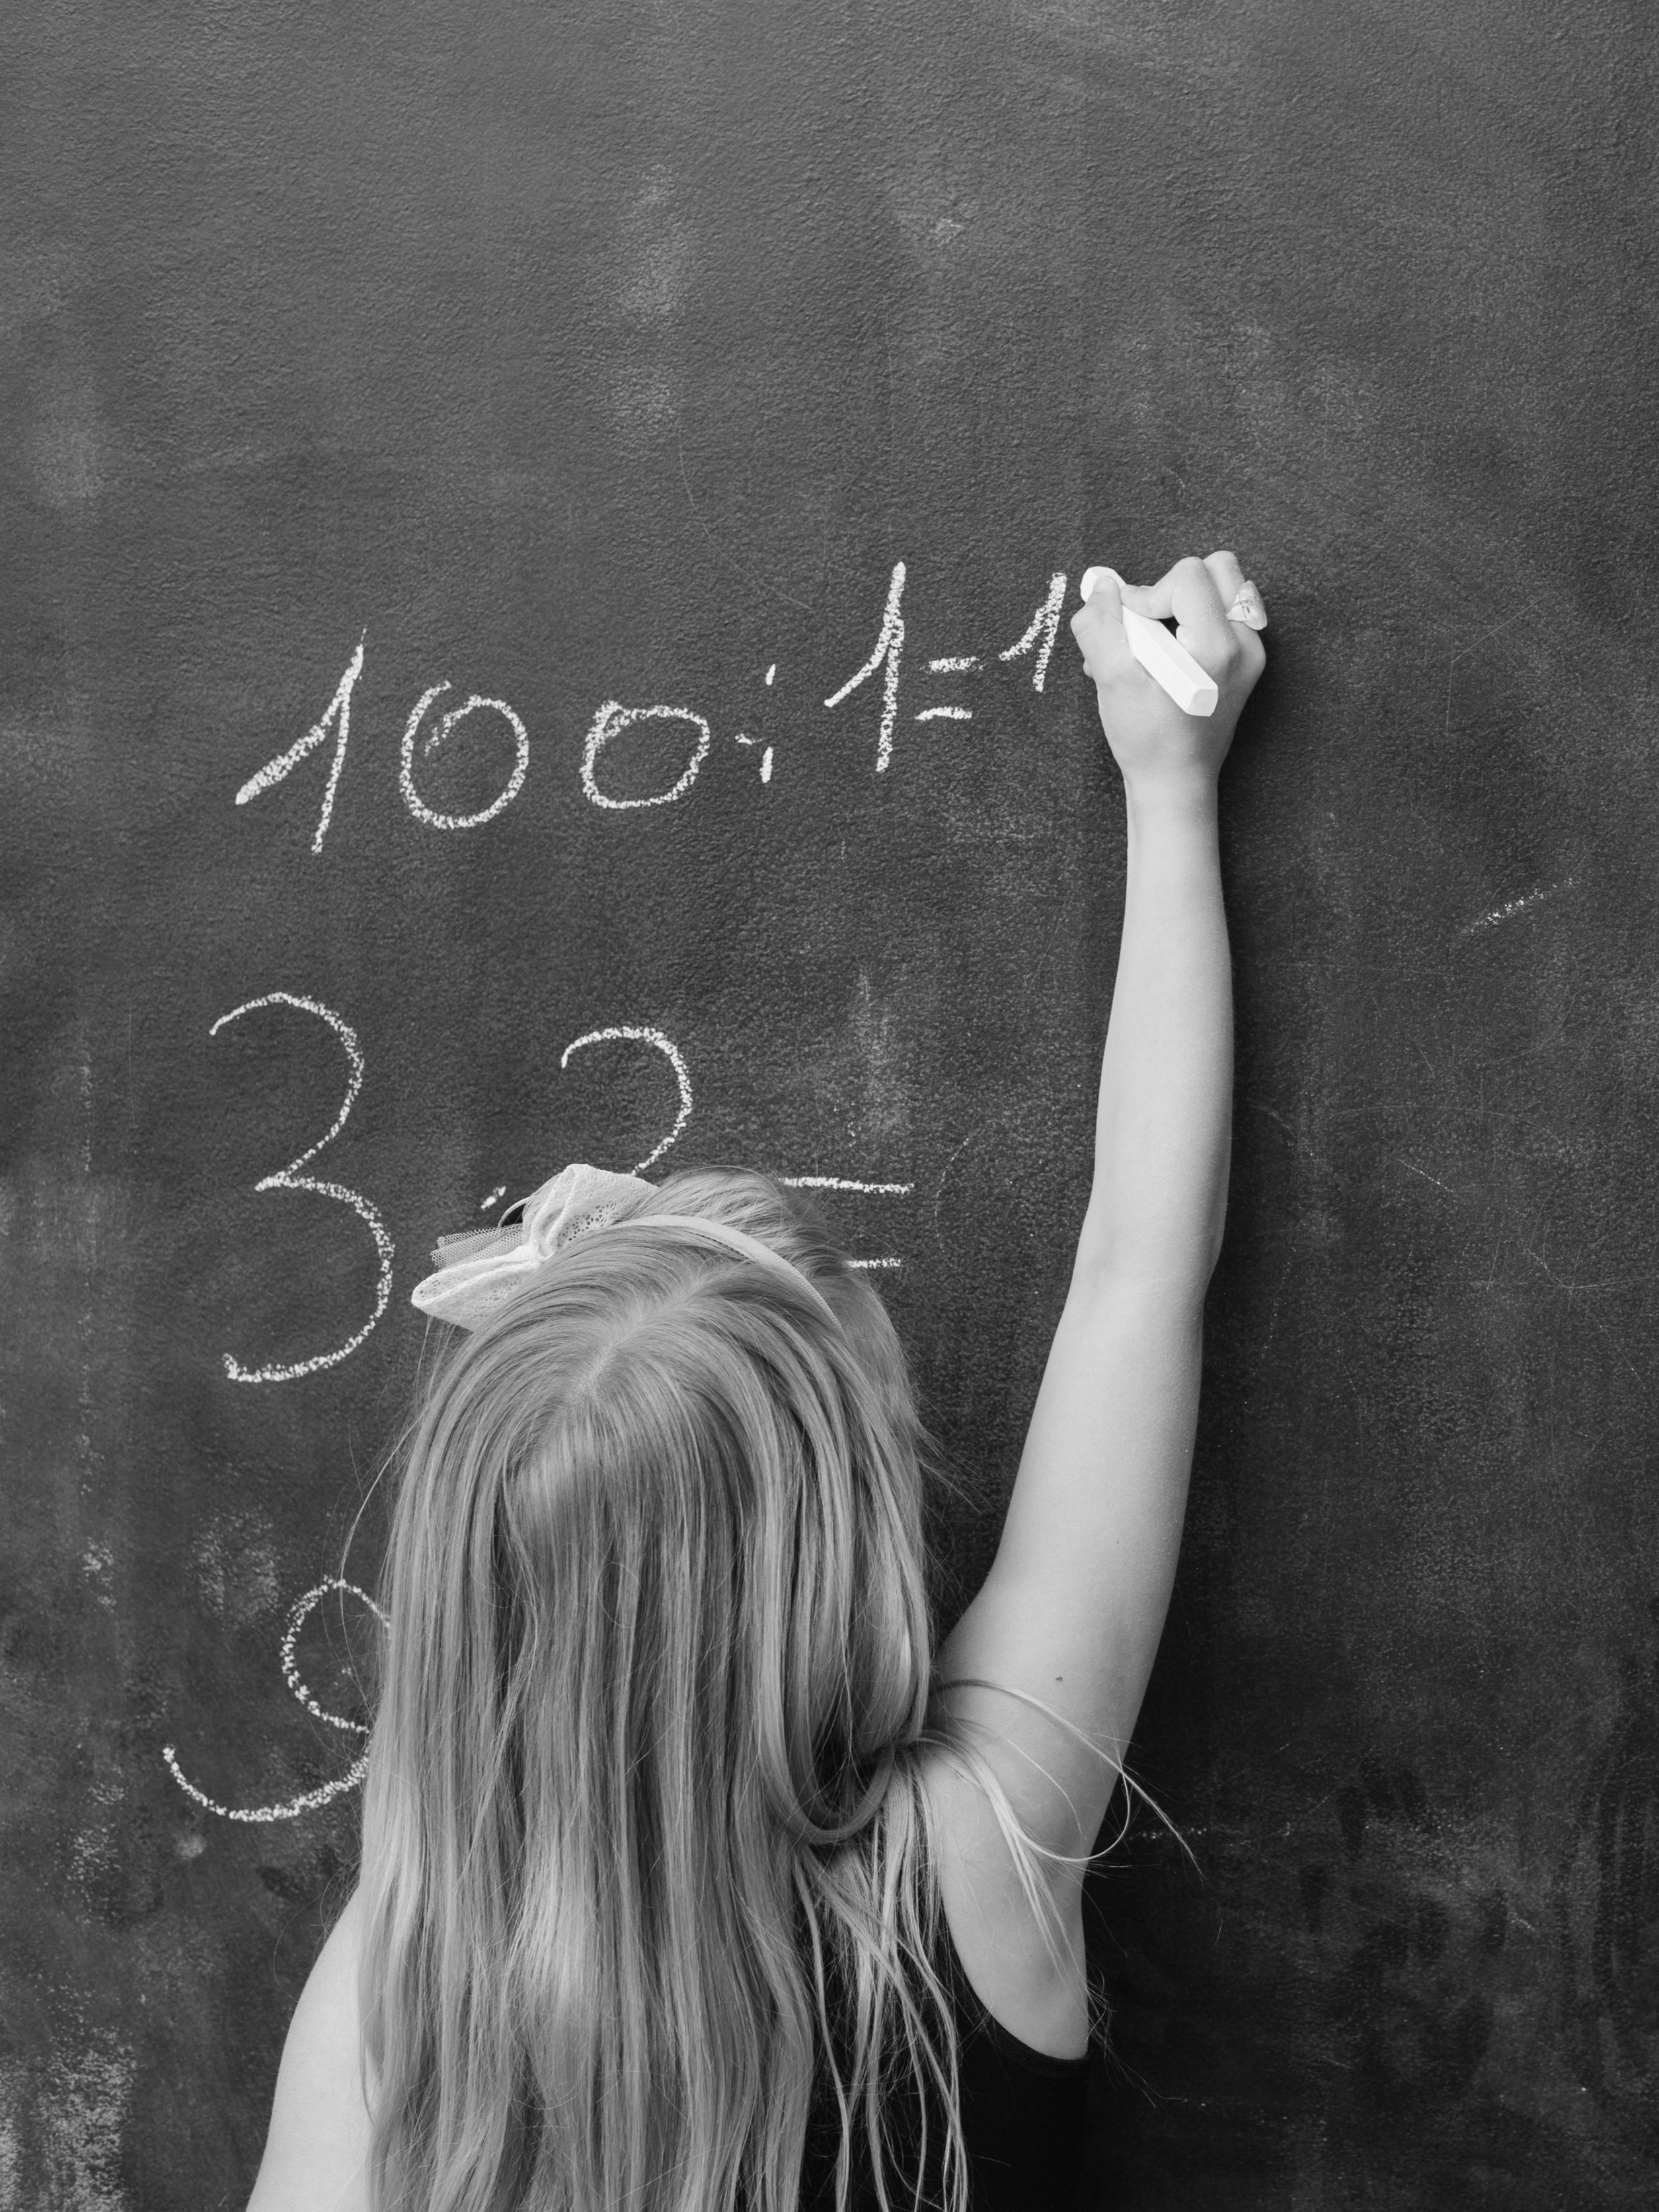 100:1=1
3·2=
9